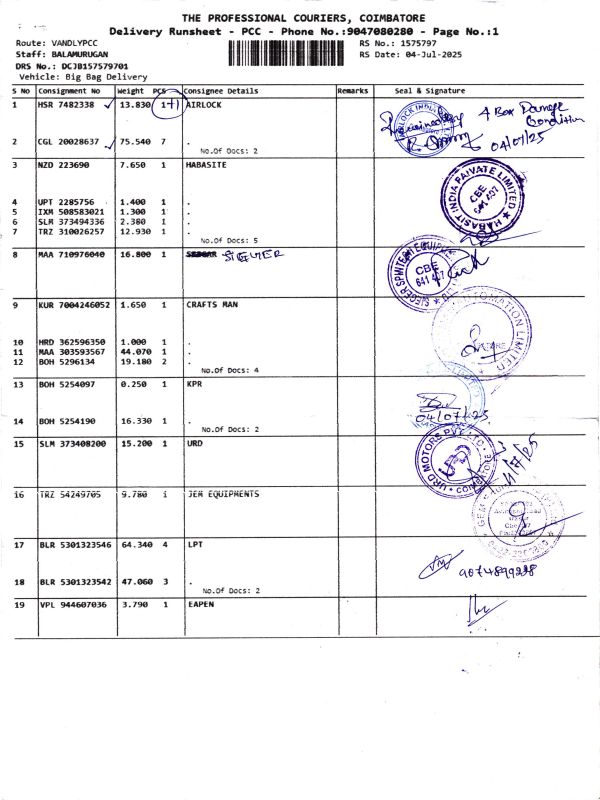 THE PROFESSIONAL COURIERS, COIMBATORE
Delivery Runsheet - PCC - Phone No.:9047080280 - Page No.:1
Route: VANDLYPCC RS No.: 1575797
Staff: BALAMURUGAN RS Date: 04-Jul-2025
DRS No.: DCJB157579701
Vehicle: Big Bag Delivery
S No Consignment No Weight PCS Consignee Details Remarks Seal & Signature
1 HSR 7482338 13.830 1+1 AIRLOCK 4 Box Damage
Condition
04/07/25
2 CGL 20028637 75.540 7 .
No.Of Docs: 2
3 NZD 223690 7.650 1 HABASITE
HABASIT INDIA PRIVATE LIMITED
CBE
641 407
4 UPT 2285756 1.400 1 .
5 IXM 508583021 1.300 1 .
6 SLM 373494336 2.380 1 .
7 TRZ 310026257 12.930 1 .
No.Of Docs: 5
8 MAA 710976040 16.800 1 SIEGER
CBE
641 407
9 KUR 7004246052 1.650 1 CRAFTS MAN
10 HRD 362596350 1.000 1 .
11 MAA 303593567 44.070 1 .
12 BOH 5296134 19.180 2 .
No.Of Docs: 4
13 BOH 5254097 0.250 1 KPR
04/07/25
14 BOH 5254190 16.330 1 .
No.Of Docs: 2
15 SLM 373408200 15.200 1 URD
URD MOTORS PVT LTD.
COIMBATORE
16 TRZ 54249705 9.780 1 JEM EQUIPMENTS
17 BLR 5301323546 64.340 4 LPT
18 BLR 5301323542 47.060 3 .
No.Of Docs: 2
19 VPL 944607036 3.790 1 EAPEN